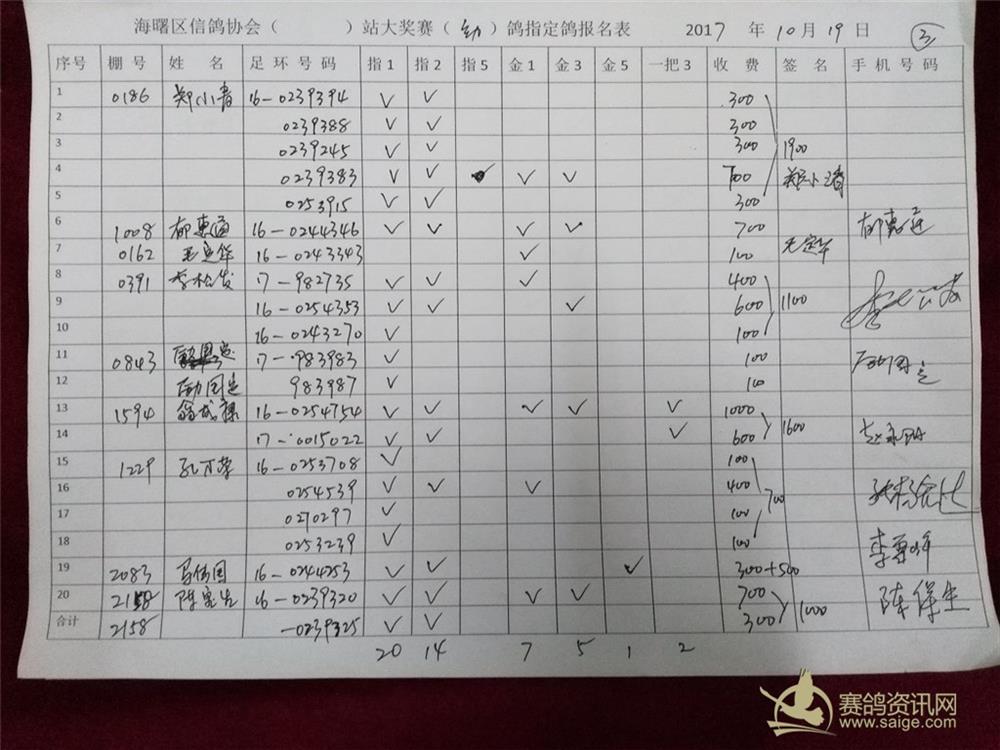 海曙区信鸽协会（ ）站大奖赛（ 幼 ）鸽指定鸽报名表 2017 年 10 月 19 日 ③
序号 棚号 姓 名 足环号码 指1 指2 指5 金1 金3 金5 一把3 收费 签名 手机号码
1 0186 郑小青 16-0239394 ✓ ✓ 300
2 0239388 ✓ ✓ 300
3 0239245 ✓ ✓ 300 1900
4 0239383 ✓ ✓ ✓ ✓ 700 郑小青
5 0253915 ✓ ✓ 300
6 1008 郁惠通 16-0244346 ✓ ✓ ✓ ✓ 700
7 0162 毛定华 16-0243343 ✓ 100 毛定华
8 0391 李松发 17-982735 ✓ ✓ ✓ 400
9 16-0254353 ✓ ✓ ✓ 600 1100
10 16-0243270 ✓ 100
11 0843 17-983983 ✓ 100
12 励国定 983987 ✓ 100
13 1594 16-0254754 ✓ ✓ ✓ ✓ ✓ 1000
14 17-0015022 ✓ ✓ ✓ 600 1600
15 1229 孔万荣 16-0253708 ✓ 100
16 0254539 ✓ ✓ ✓ 400 700
17 0270297 ✓ 100
18 0253239 ✓ 100
19 2083 马伟国 16-0244253 ✓ ✓ ✓ 300+500
20 2158 16-0239320 ✓ ✓ ✓ ✓ 700 1000
合计 2158 -0239325 ✓ ✓ 300
20 14 7 5 1 2
赛鸽资讯网
www.saige.com